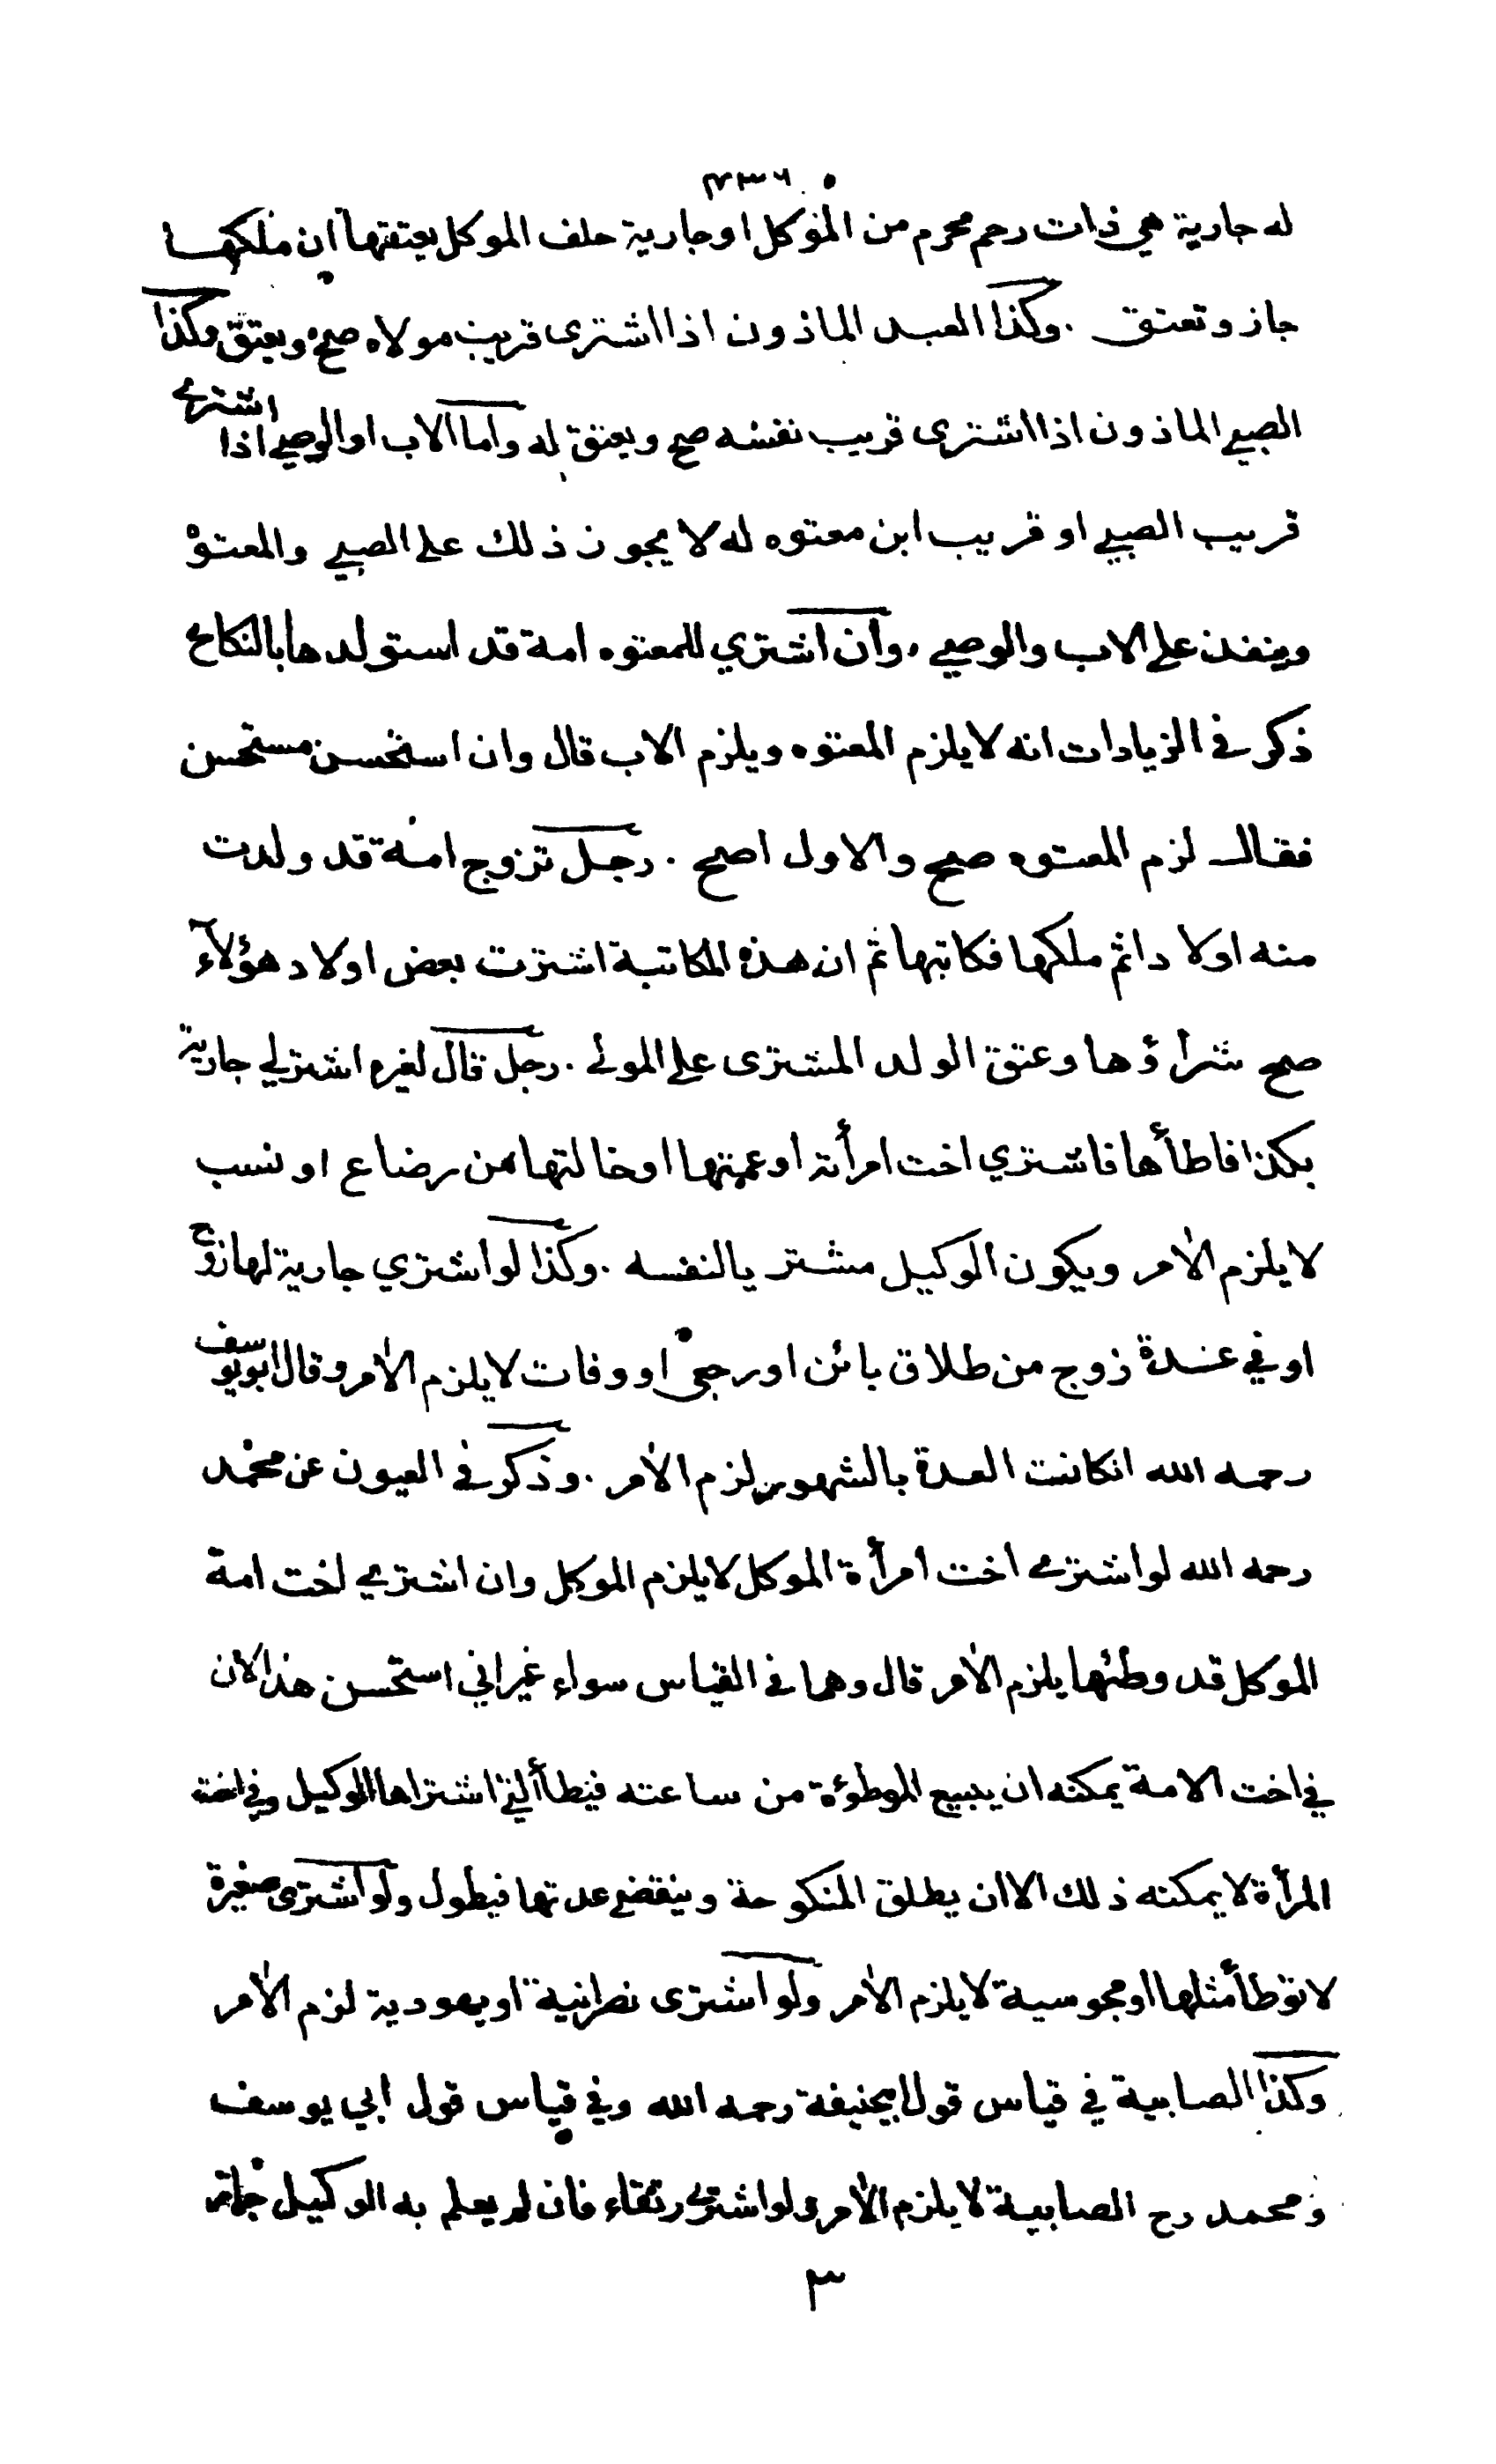 ٧٣٦
له جارية هي ذات رحم محرم من الموكل او جارية حلف الموكل بعتقها ان ملكها
جاز وتعتق . وكذا العبد الماذون اذا اشترى قريب مولاه صح ويعتق وكذا
الصبي الماذون اذا اشترى قريب نفسه صح ويعتق له واما الاب او الوصي اذا اشترى
قريب الصبي او قريب ابن معتوه له لا يجوز ذلك على الصبي والمعتوه
وينفذ على الاب والوصي . وان اشترى للمعتوه امة قد استولدها بالنكاح
ذكر في الزيادات انه لا يلزم المعتوه ويلزم الاب قال وان استحسن مستحسن
فقال لزم المعتوه صح والاول اصح . رجل تزوج امة قد ولدت
منه اولادا ثم ملكها فكاتبها ثم ان هذه المكاتبة اشترت بعض اولاد هؤلاء
صح شرآؤها وعتق الولد المشترى على المولى . رجل قال لغيره اشتر لي جارية
بكذا فاطأها فاشترى اخت امرأته او عمتها او خالتها من رضاع او نسب
لا يلزم الآمر ويكون الوكيل مشتريا لنفسه . وكذا لو اشترى جارية لها زوج
او في عدة زوج من طلاق بائن او رجعي او وفات لا يلزم الآمر وقال ابو يوسف
رحمه الله انكانت العدة بالشهور لزم الآمر . وذكر في العيون عن محمد
رحمه الله لو اشترى اخت امرأة الموكل لا يلزم الموكل وان اشترى اخت امة
الموكل قد وطئها يلزم الآمر قال وهما في القياس سواء غير اني استحسن هذا لان
في اخت الامة يمكنه ان يبيع الموطوءة من ساعته فيطأ التي اشتراها الوكيل وفي اخت
المرأة لا يمكنه ذلك الا ان يطلق المنكوحة وينقضي عدتها فيطول ولو اشترى صغيرة
لا توطأ مثلها او مجوسية لا يلزم الآمر ولو اشترى نصرانية او يهودية لزم الآمر
وكذا الصابية في قياس قول ابيحنيفة رحمه الله وفي قياس قول ابي يوسف
ومحمد رح الصابية لا يلزم الآمر ولو اشترى رتقاء فان لم يعلم به الوكيل جاز
٣